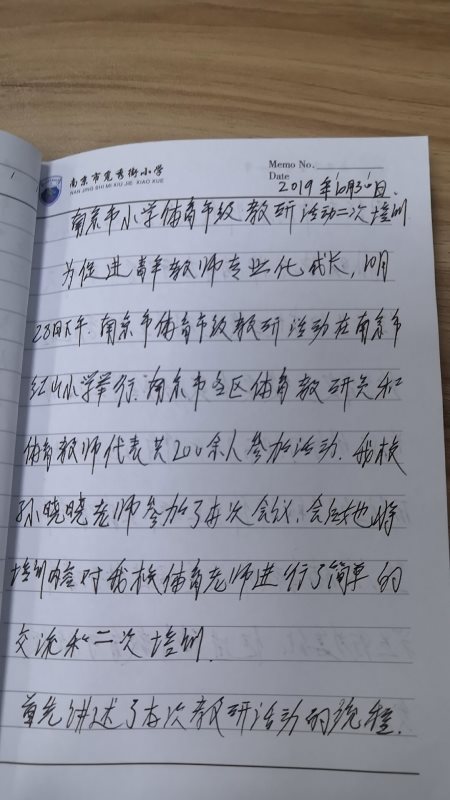 南京市觅秀街小学
NAN JING SHI MI XIU JIE XIAO XUE
Memo No.
Date
2019年10月30日.
南京市小学体育市级教研活动二次培训
为促进青年教师专业化成长,10月
28日下午.南京市体育市级教研活动在南京市
红山小学举行.南京市各区体育教研员和
体育教师代表共200余人参加活动.我校
孙晓晓老师参加了本次会议,会后她将
培训内容对我校体育老师进行了简单的
交流和二次培训.
首先讲述了本次教研活动的流程.